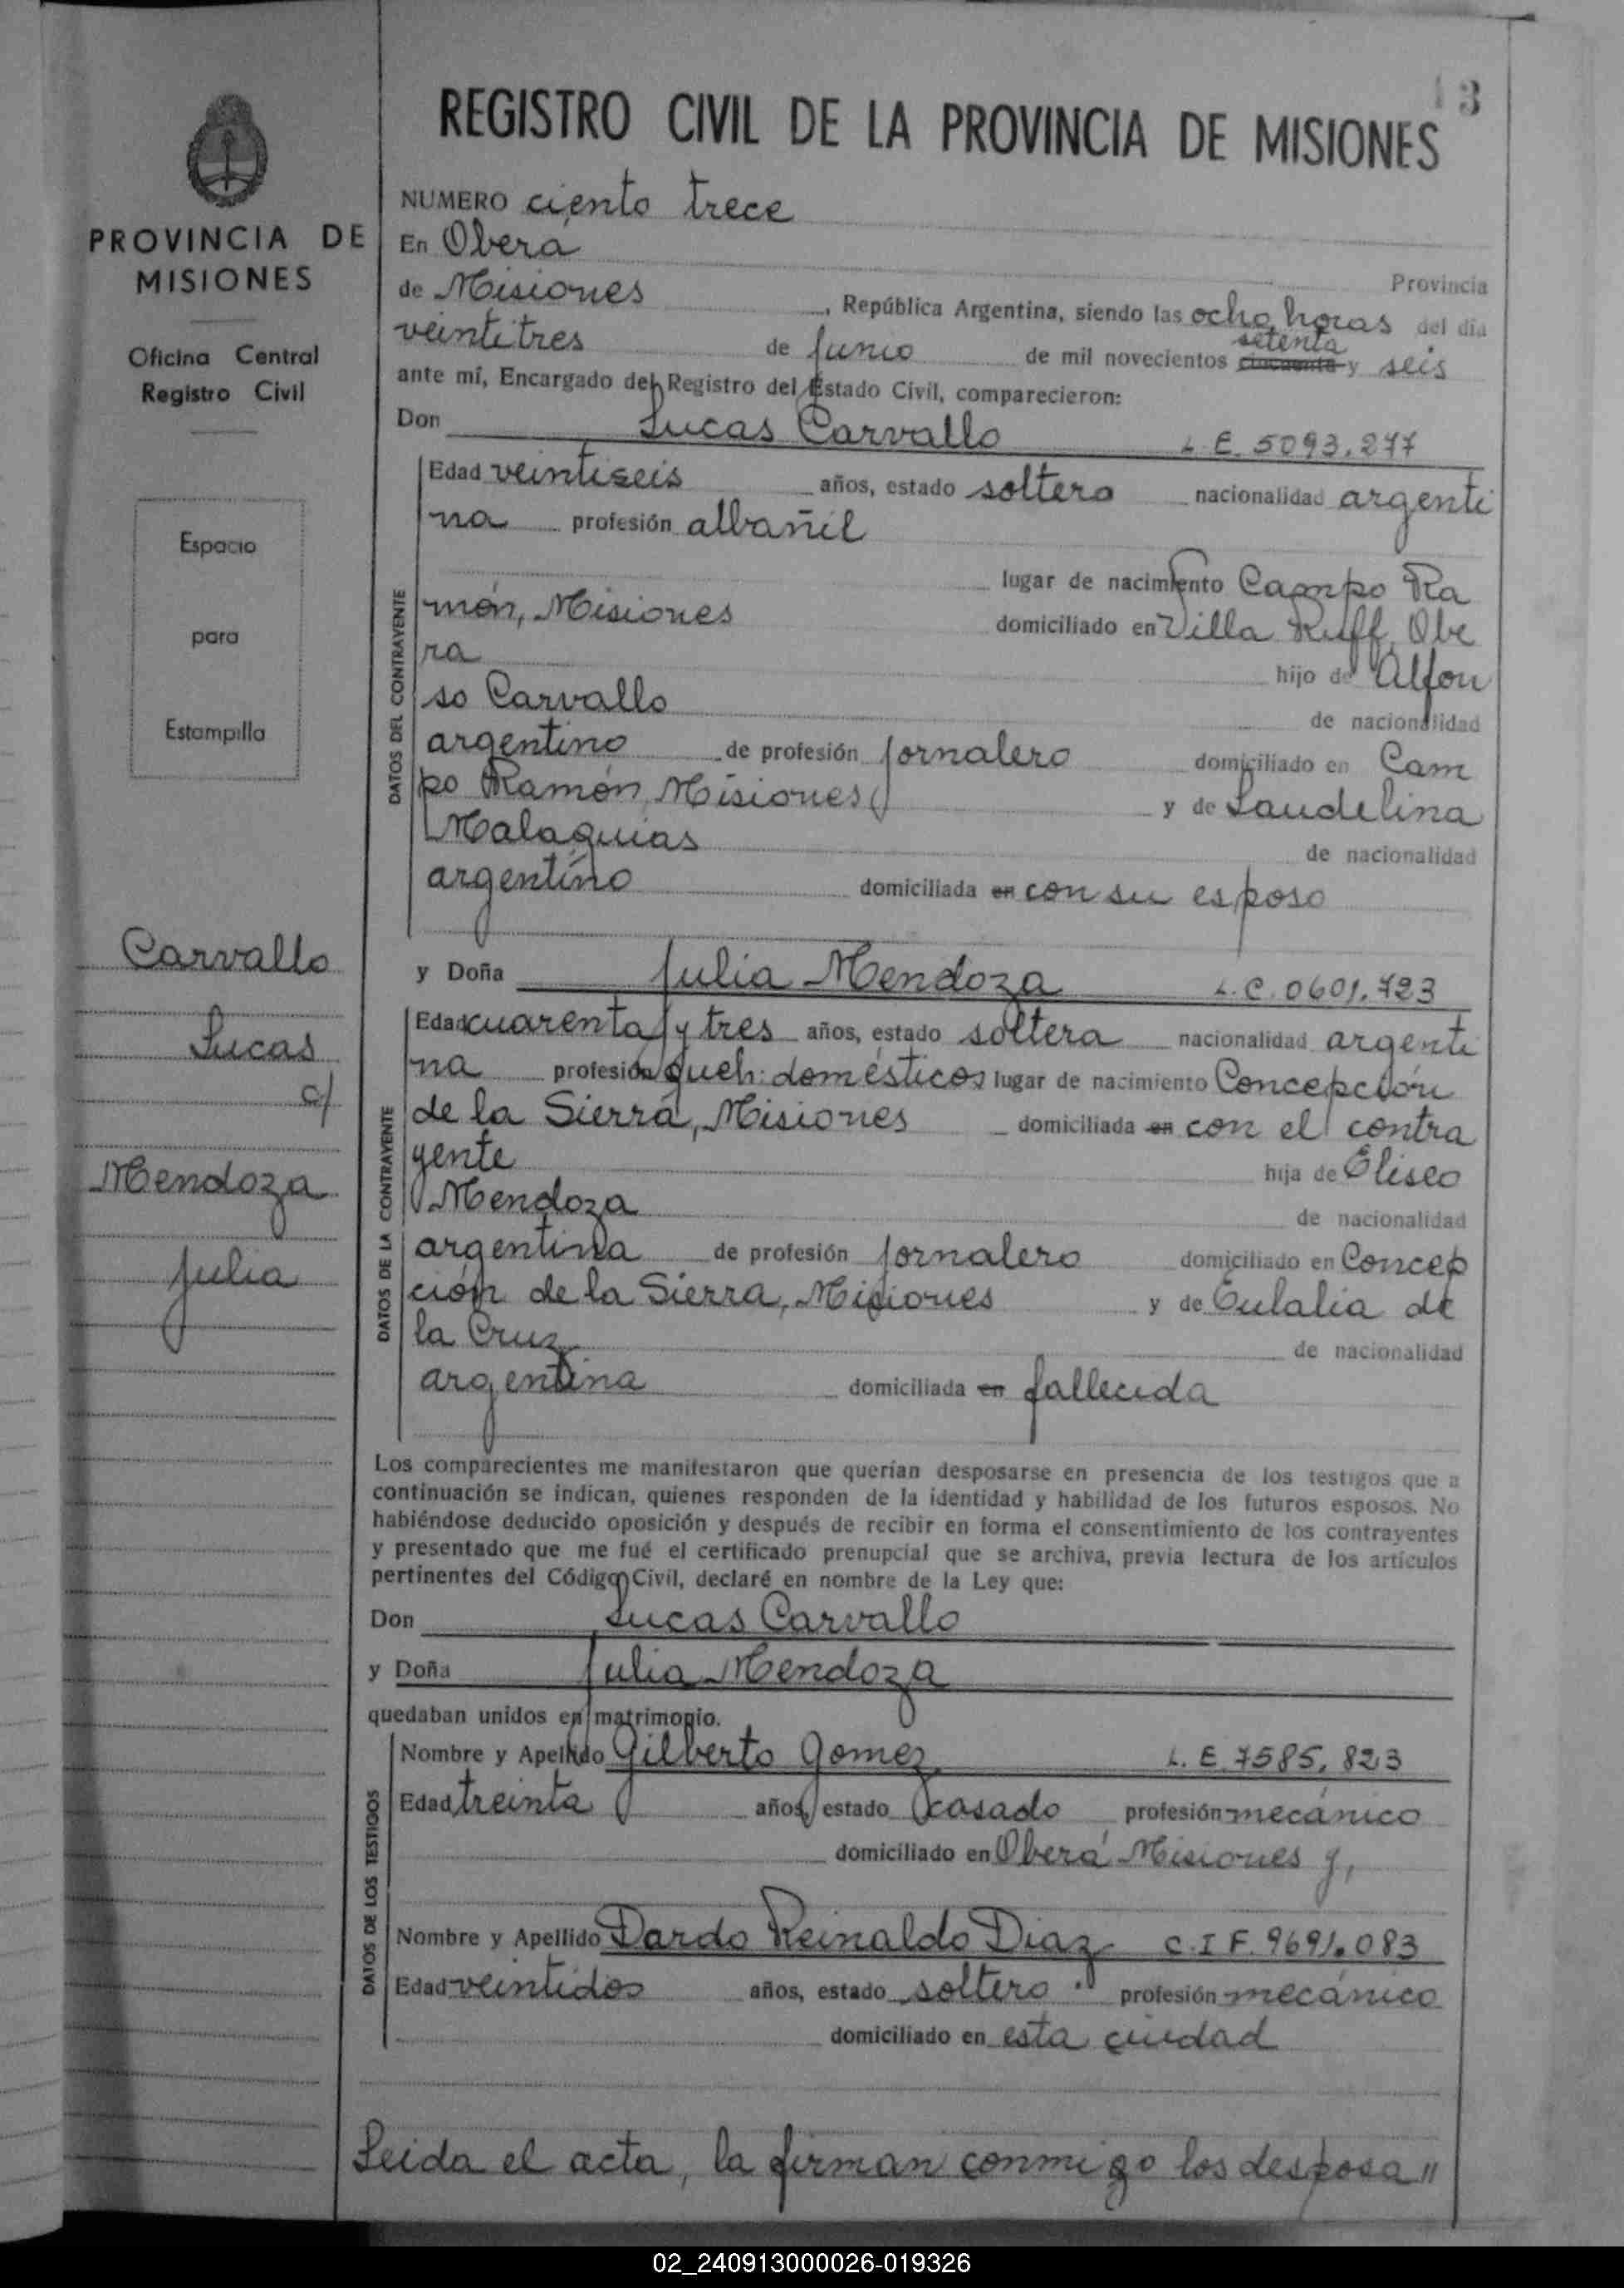 13
REGISTRO CIVIL DE LA PROVINCIA DE MISIONES
PROVINCIA DE
MISIONES
Oficina Central
Registro Civil
Espacio
para
Estampilla
Carvallo
Lucas
c/
Mendoza
Julia
NUMERO ciento trece
En Oberá
Provincia
de Misiones, República Argentina, siendo las ocho horas del día
veintitres de Junio de mil novecientos setenta cincuenta y seis
ante mí, Encargado del Registro del Estado Civil, comparecieron:
Don Lucas Carvallo L.E. 5093.277
DATOS DEL CONTRAYENTE
Edad veintiseis años, estado soltero nacionalidad argenti
na profesión albañil
lugar de nacimiento Campo Ra
món, Misiones domiciliado en Villa Ruff, Obe
ra hijo de Alfon
so Carvallo de nacionalidad
argentino de profesión Jornalero domiciliado en Cam
po Ramón, Misiones y de Laudelina
Malaquias de nacionalidad
argentino domiciliada en con su esposo
y Doña Julia Mendoza L.C. 0601.723
DATOS DE LA CONTRAYENTE
Edad cuarenta y tres años, estado soltera nacionalidad argenti
na profesión queh: domésticos lugar de nacimiento Concepción
de la Sierra, Misiones domiciliada en con el contra
yente hija de Eliseo
Mendoza de nacionalidad
argentina de profesión Jornalero domiciliado en Concep
ción de la Sierra, Misiones y de Eulalia de
la Cruz de nacionalidad
argentina domiciliada en fallecida
Los comparecientes me manifestaron que querían desposarse en presencia de los testigos que a
continuación se indican, quienes responden de la identidad y habilidad de los futuros esposos. No
habiéndose deducido oposición y después de recibir en forma el consentimiento de los contrayentes
y presentado que me fué el certificado prenupcial que se archiva, previa lectura de los artículos
pertinentes del Código Civil, declaré en nombre de la Ley que:
Don Lucas Carvallo
y Doña Julia Mendoza
quedaban unidos en matrimonio.
DATOS DE LOS TESTIGOS
Nombre y Apellido Gilberto Gomez L.E. 7585.823
Edad treinta años, estado casado profesión mecánico
domiciliado en Oberá Misiones y,
Nombre y Apellido Dardo Reinaldo Diaz C.I F. 9691.083
Edad veintidos años, estado soltero profesión mecánico
domiciliado en esta ciudad
Leida el acta, la firman conmigo los desposa "
02_240913000026-019326